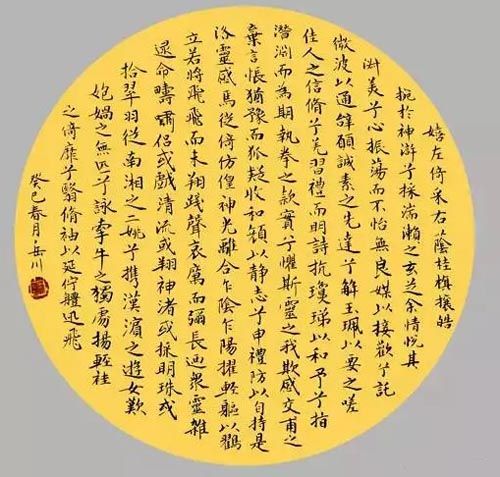 嬉左倚采右蔭桂旗攘皓
捥於神滸兮採湍瀨之玄芝余情悅其
淑美兮心振蕩而不怡無良媒以接歡兮託
微波以通辭願誠素之先達兮解玉珮以要之嗟
佳人之信脩兮羌習禮而明詩抗瓊珶以和予兮指
潛淵而為期執拳之款實兮懼斯靈之我欺感交甫之
棄言悵猶豫而狐疑收和顏以靜志兮申禮防以自持是
洛靈感焉從倚傍偟神光離合乍陰乍陽擢輕軀以鶴
立若將飛飛而未翔踐聲哀厲而彌長迪衆靈雜
遝命疇嘯侶或戲清流或翔神渚或採明珠或
拾翠羽從南湘之二姚兮攜漢濱之遊女歎
匏媧之無匹兮詠牽牛之獨處揚輕袿
之猗靡兮翳脩袖以延佇體迅飛
癸巳春月岳川